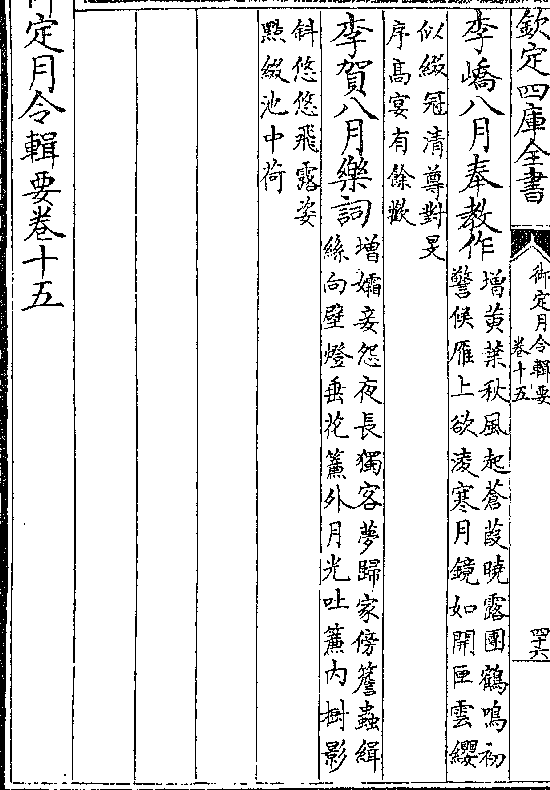 欽定四庫全書
御定月令輯要
卷十五
四十六
李嶠八月奉教作
增黃葉秋風起蒼葭曉露團鶴鳴初
警候雁上欲淩寒月鏡如開匣雲纓
似綴冠清尊對旻
序高宴有餘歡
李賀八月樂詞
增孀妾怨夜長獨客夢歸家傍簷蟲緝
絲向壁燈垂花簾外月光吐簾内樹影
斜悠悠飛露姿
點綴池中荷
御定月令輯要卷十五